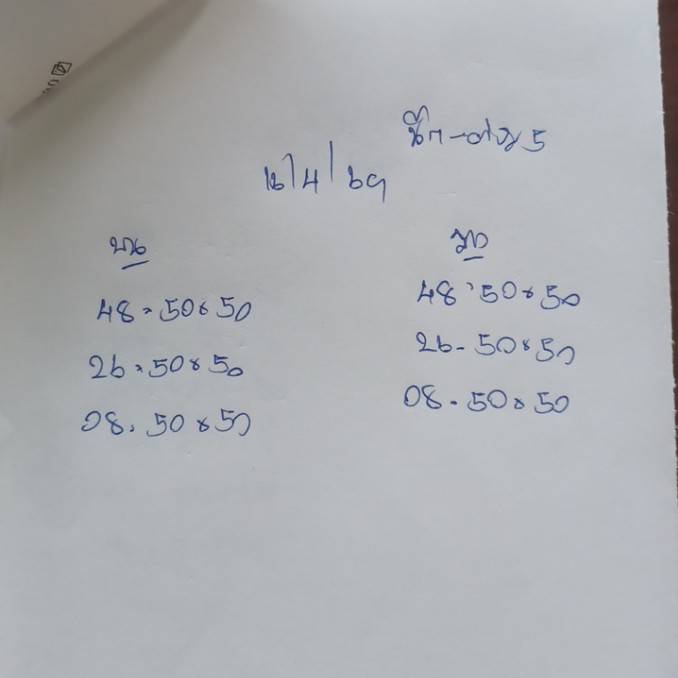 16/4/69
บน
48 = 50 x 50
26 = 50 x 50
08 = 50 x 50
48 = 50 x 50
26 - 50 x 50
08 - 50 x 50